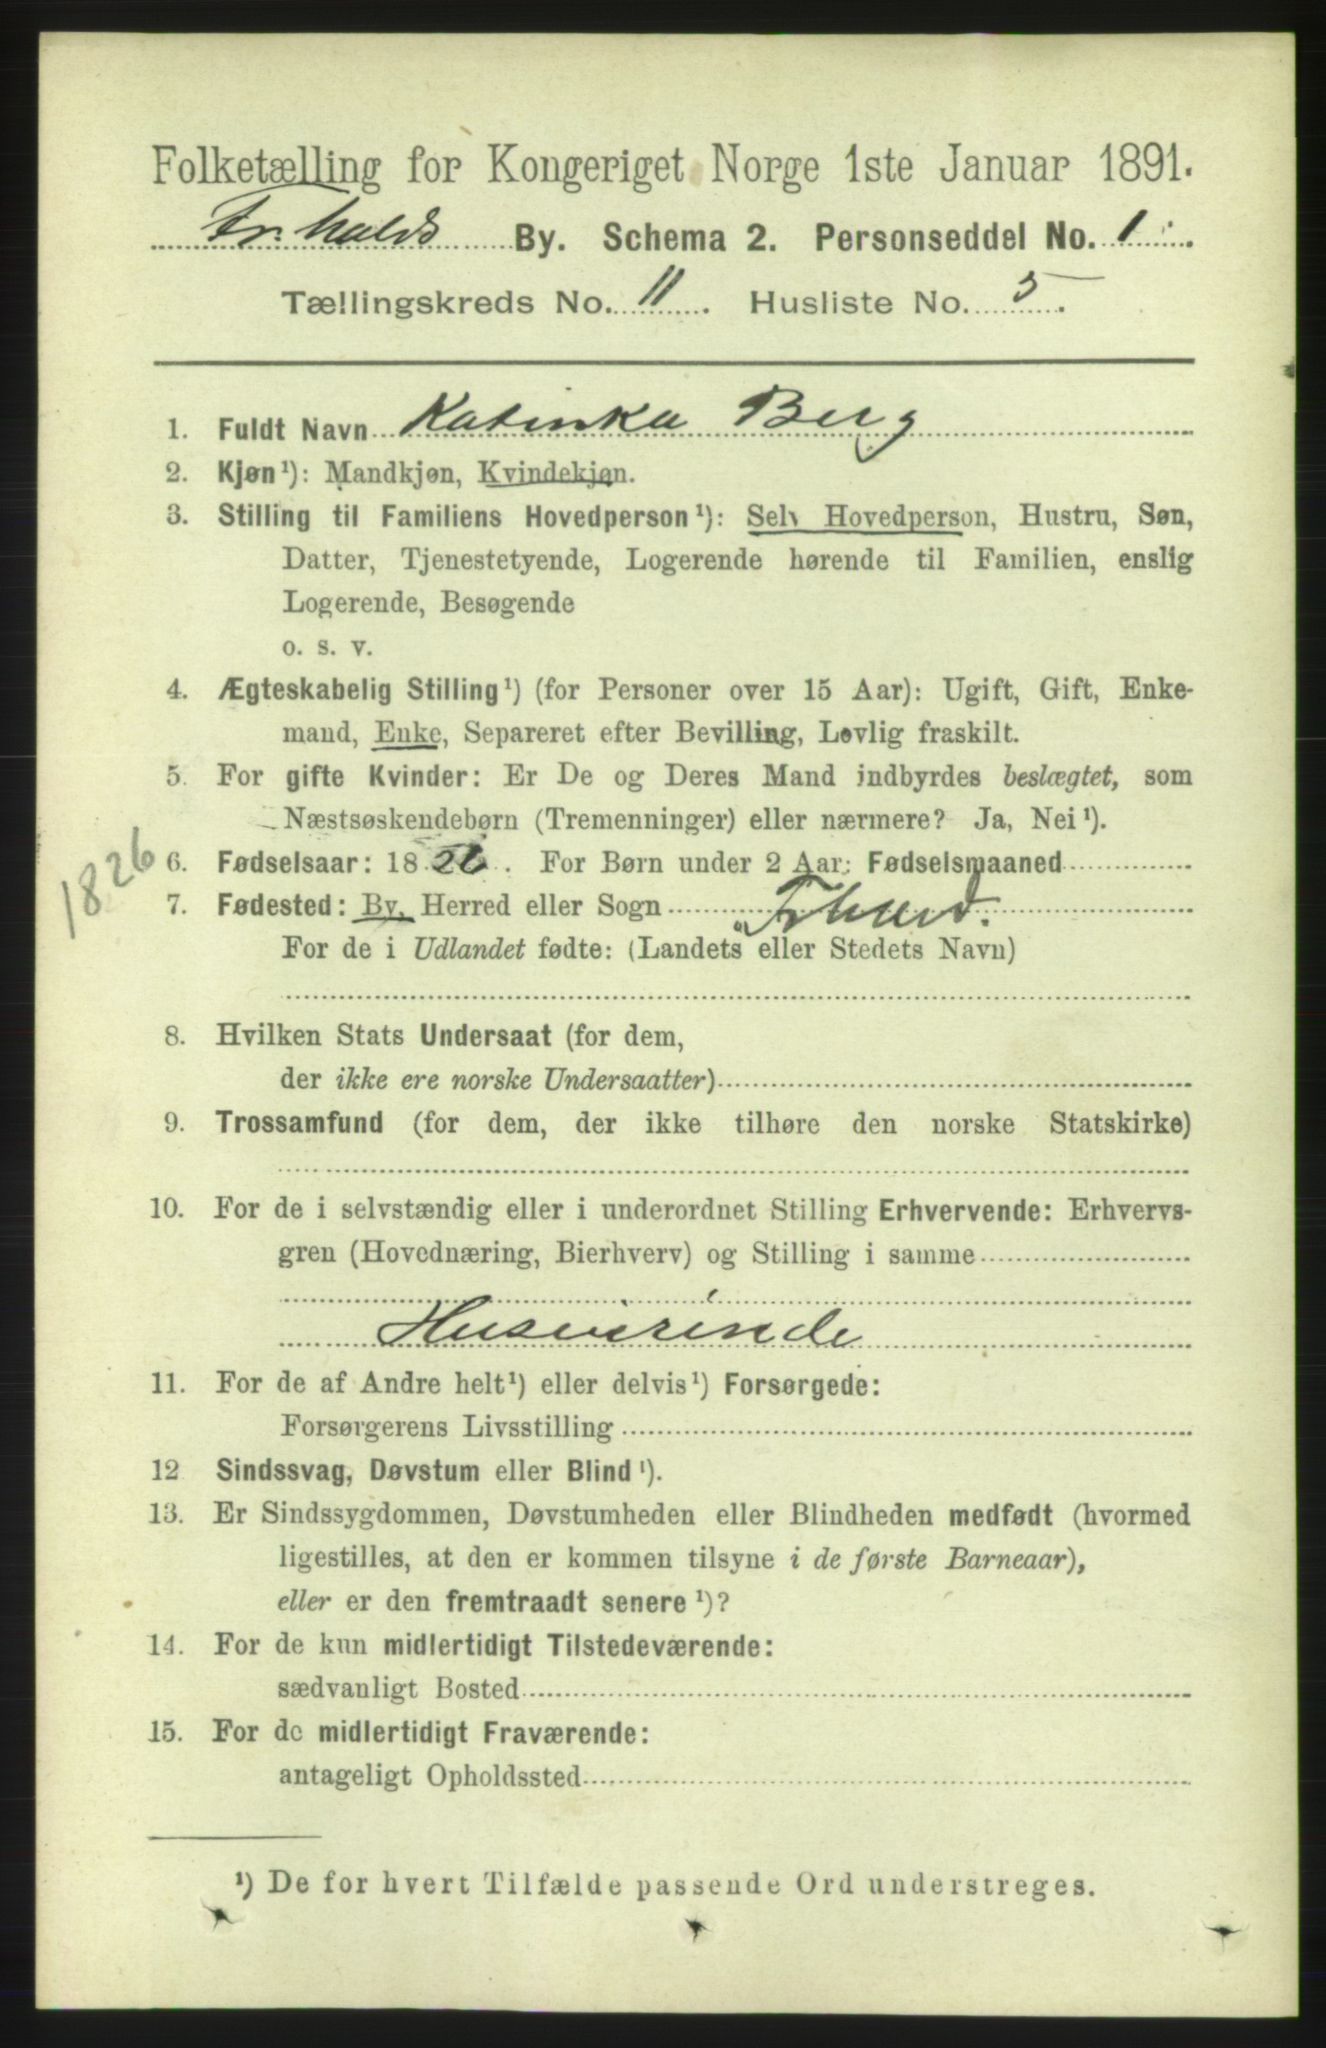 Folketælling for Kongeriget Norge 1ste Januar 1891.
Fr.halds By. Schema 2. Personseddel No. 1
Tællingskreds No. 11. Husliste No. 5.
1. Fuldt Navn Katinka Berg
2. Kjøn¹): Mandkjøn, Kvindekjøn.
3. Stilling til Familiens Hovedperson¹): Selv Hovedperson, Hustru, Søn,
Datter, Tjenestetyende, Logerende hørende til Familien, enslig
Logerende, Besøgende
o. s. v.
4. Ægteskabelig Stilling¹) (for Personer over 15 Aar): Ugift, Gift, Enke-
mand, Enke, Separeret efter Bevilling, Lovlig fraskilt.
5. For gifte Kvinder: Er De og Deres Mand indbyrdes beslægtet, som
Næstsøskendebørn (Tremenninger) eller nærmere? Ja, Nei¹).
1826
6. Fødselsaar: 1826. For Børn under 2 Aar: Fødselsmaaned
7. Fødested: By, Herred eller Sogn Frhald.
For de i Udlandet fødte: (Landets eller Stedets Navn)
8. Hvilken Stats Undersaat (for dem,
der ikke ere norske Undersaatter)
9. Trossamfund (for dem, der ikke tilhøre den norske Statskirke)
10. For de i selvstændig eller i underordnet Stilling Erhvervende: Erhvervs-
gren (Hovednæring, Bierhverv) og Stilling i samme
Huseierinde
11. For de af Andre helt¹) eller delvis¹) Forsørgede:
Forsørgerens Livsstilling
12 Sindssvag, Døvstum eller Blind¹).
13. Er Sindssygdommen, Døvstumheden eller Blindheden medfødt (hvormed
ligestilles, at den er kommen tilsyne i de første Barneaar),
eller er den fremtraadt senere¹)?
14. For de kun midlertidigt Tilstedeværende:
sædvanligt Bosted
15. For de midlertidigt Fraværende:
antageligt Opholdssted
¹) De for hvert Tilfælde passende Ord understreges.